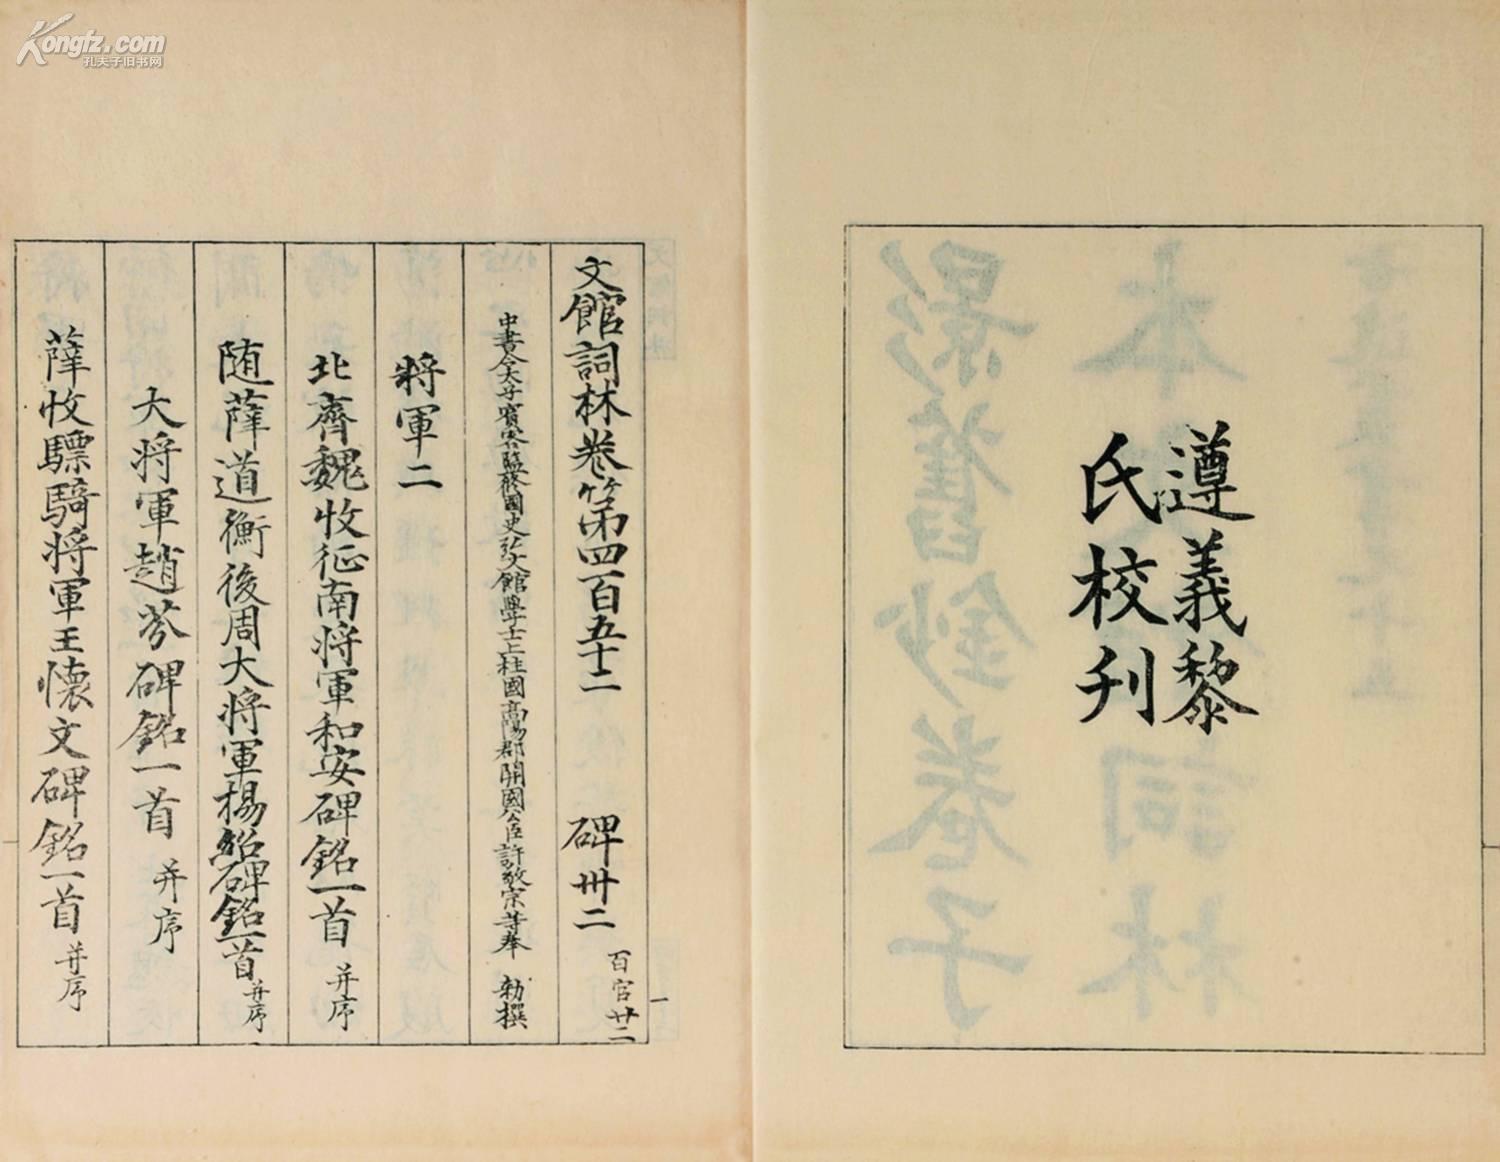 Kongfz.com
孔夫子旧书网
遵義黎
氏校刋
文館詞林卷第四百五十二 碑卅二 百官廿二
中書令太子賓客監修國史弘文館學士上柱國高陽郡開國公臣許敬宗等奉 勑撰
將軍二
北齊魏收征南將軍和安碑銘一首 并序
随薛道衡後周大將軍楊紹碑銘一首 并序
大將軍趙芬碑銘一首 并序
薛收驃騎將軍王懷文碑銘一首 并序
一